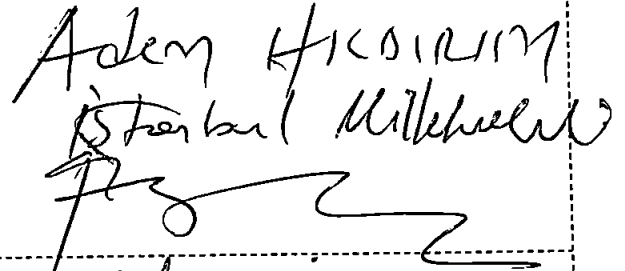 Adem YILDIRIM
İstanbul Milletvekili